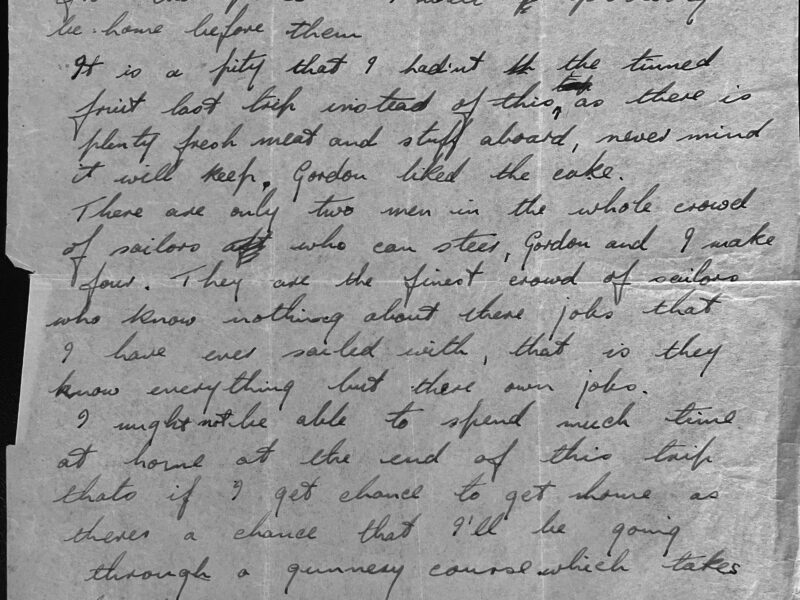 be home before them
It is a pity that I hadn't the tinned
fruit last trip instead of this, as there is
plenty fresh meat and stuff aboard, never mind
it will keep. Gordon liked the cake.
There are only two men in the whole crowd
of sailors who can steer, Gordon and I make
four. They are the finest crowd of sailors
who know nothing about there jobs that
I have ever sailed with, that is they
know everything but there own jobs.
I might not be able to spend much time
at home at the end of this trip
thats if I get chance to get home as
theres a chance that I'll be going
through a gunnery course which takes